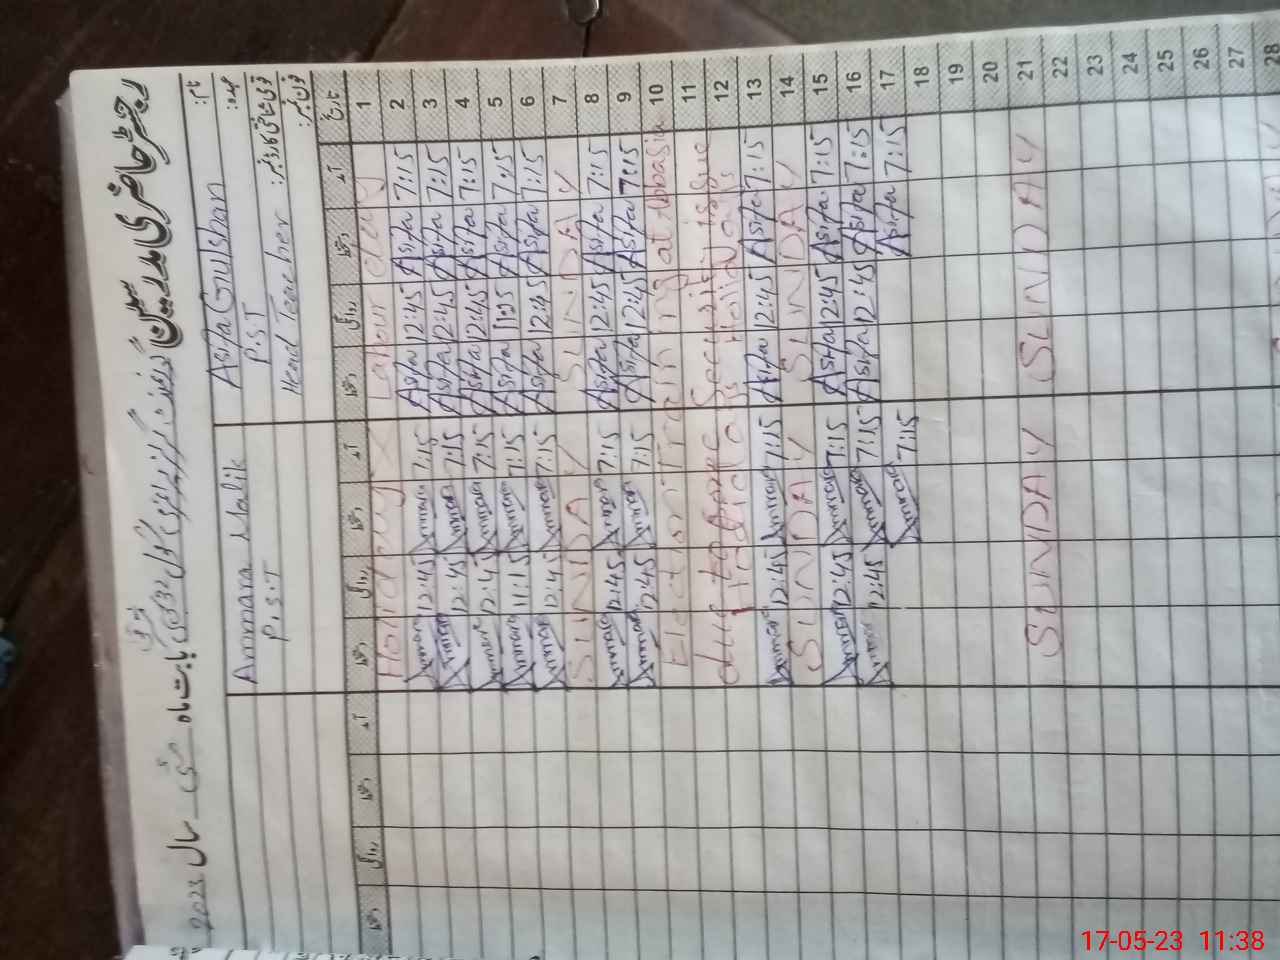 رجسٹر حاضری مدرسین گورنمنٹ گرلز پرائمری سکول
بابت ماہ مئی سال 2023
نام:
Asifa Gulshan
Ammara Malik
عہدہ:
P.S.T
P.S.T
قومی شناختی کارڈ نمبر:
Head Teacher
فون نمبر:
تاریخ آمد دستخط روانگی دستخط آمد دستخط روانگی دستخط آمد دستخط روانگی دستخط
1 Labour day Holiday
2 7:15 Asifa 12:45 Asifa 7:15 Ammara 12:45 Ammara
3 7:15 Asifa 12:45 Asifa 7:15 Ammara 12:45 Ammara
4 7:15 Asifa 12:45 Asifa 7:15 Ammara 12:45 Ammara
5 7:15 Asifa 11:15 Asifa 7:15 Ammara 11:15 Ammara
6 7:15 Asifa 12:45 Asifa 7:15 Ammara 12:45 Ammara
7 SUNDAY SUNDAY
8 7:15 Asifa 12:45 Asifa 7:15 Ammara 12:45 Ammara
9 7:15 Asifa 12:45 Asifa 7:15 Ammara 12:45 Ammara
10 Election Training at Abbasia
11 due to Security issue
12 Holidays Holidays
13 7:15 Asifa 12:45 Asifa 7:15 Ammara 12:45 Ammara
14 SUNDAY SUNDAY
15 7:15 Asifa 12:45 Asifa 7:15 Ammara 12:45 Ammara
16 7:15 Asifa 12:45 Asifa 7:15 Ammara 12:45 Ammara
17 7:15 Asifa 7:15 Ammara
18
19
20
21 SUNDAY SUNDAY
22
23
24
25
26
27
28
17-05-23 11:38